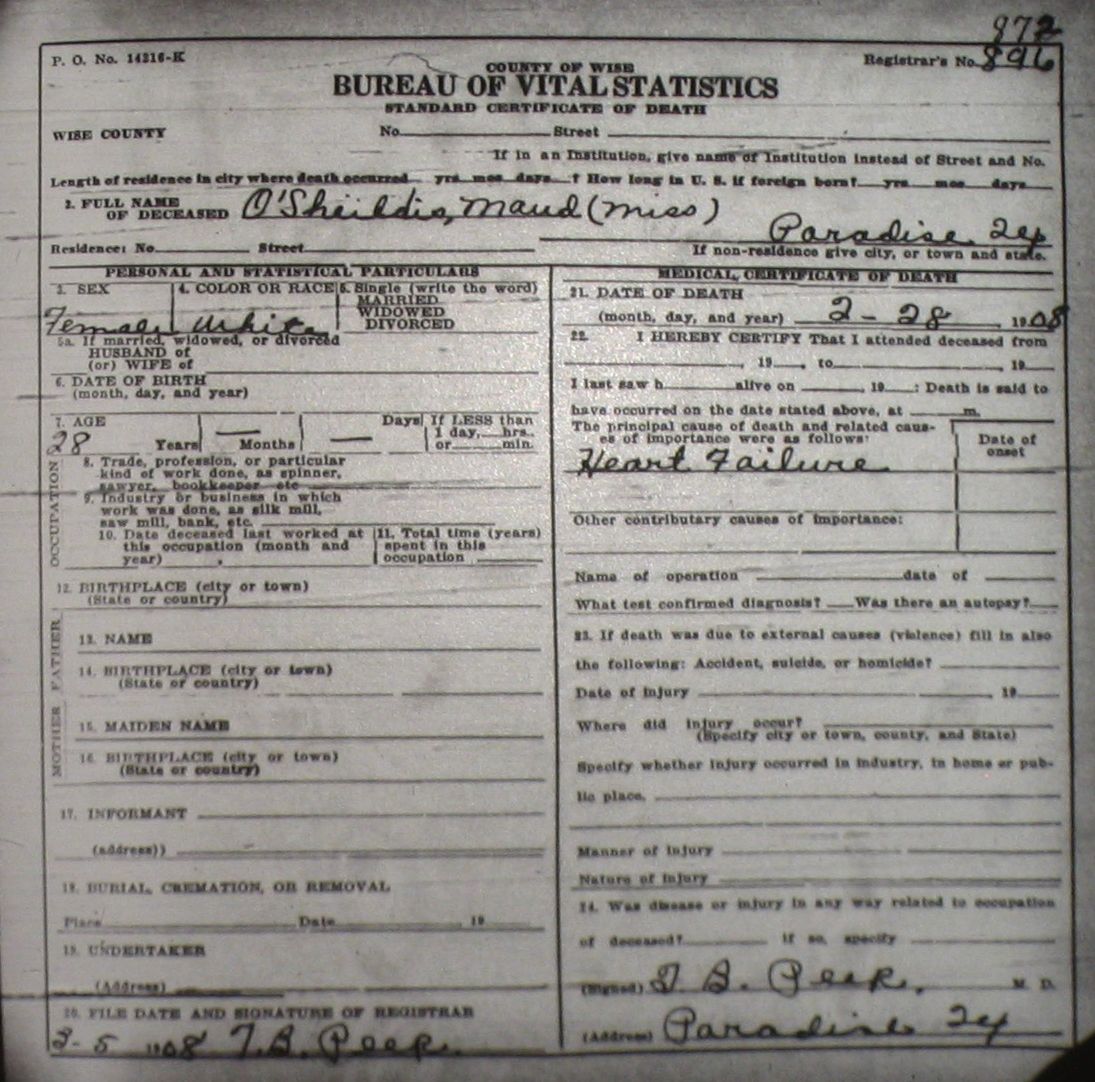 872
P. O. No. 14316-K
Registrar's No. 896
COUNTY OF WISE
BUREAU OF VITAL STATISTICS
STANDARD CERTIFICATE OF DEATH
WISE COUNTY No. Street
If in an Institution, give name of Institution instead of Street and No.
Length of residence in city where death occurred yrs mos days ? How long in U. S. if foreign born? yrs mos days
2. FULL NAME
OF DECEASED O'Sheildis, Maud (Miss)
Paradise Tex
Residence: No. Street
If non-residence give city, or town and state.
PERSONAL AND STATISTICAL PARTICULARS
3. SEX 4. COLOR OR RACE 5. Single (write the word)
MARRIED
WIDOWED
DIVORCED
Female White
5a. If married, widowed, or divorced
HUSBAND of
(or) WIFE of
6. DATE OF BIRTH
(month, day, and year)
7. AGE Days If LESS than
1 day, hrs.
28 Years — Months — or min.
OCCUPATION
8. Trade, profession, or particular
kind of work done, as spinner,
sawyer, bookkeeper etc
9. Industry or business in which
work was done, as silk mill,
saw mill, bank, etc.
10. Date deceased last worked at
this occupation (month and
year) ,
11. Total time (years)
spent in this
occupation
12. BIRTHPLACE (city or town)
(State or country)
FATHER
13. NAME
14. BIRTHPLACE (city or town)
(State or country)
MOTHER
15. MAIDEN NAME
16. BIRTHPLACE (city or town)
(State or country)
17. INFORMANT
(address))
18. BURIAL, CREMATION, OR REMOVAL
Place Date 19
19. UNDERTAKER
(Address)
20. FILE DATE AND SIGNATURE OF REGISTRAR
3-5 1908 T. B. Peek.
MEDICAL CERTIFICATE OF DEATH
21. DATE OF DEATH
(month, day, and year) 2-28, 1908
22. I HEREBY CERTIFY That I attended deceased from
, 19 , to , 19
I last saw h alive on , 19 : Death is said to
have occurred on the date stated above, at m.
The principal cause of death and related caus-
es of importance were as follows:
Date of
onset
Heart Failure
Other contributary causes of importance:
Name of operation date of
What test confirmed diagnosis? Was there an autopsy?
23. If death was due to external causes (violence) fill in also
the following: Accident, suicide, or homicide?
Date of injury , 19
Where did injury occur?
(Specify city or town, county, and State)
Specify whether injury occurred in industry, in home or pub-
lic place.
Manner of injury
Nature of injury
24. Was disease or injury in any way related to occupation
of deceased? If so, specify
(Signed) T. B. Peek, M. D.
(Address) Paradise Tex